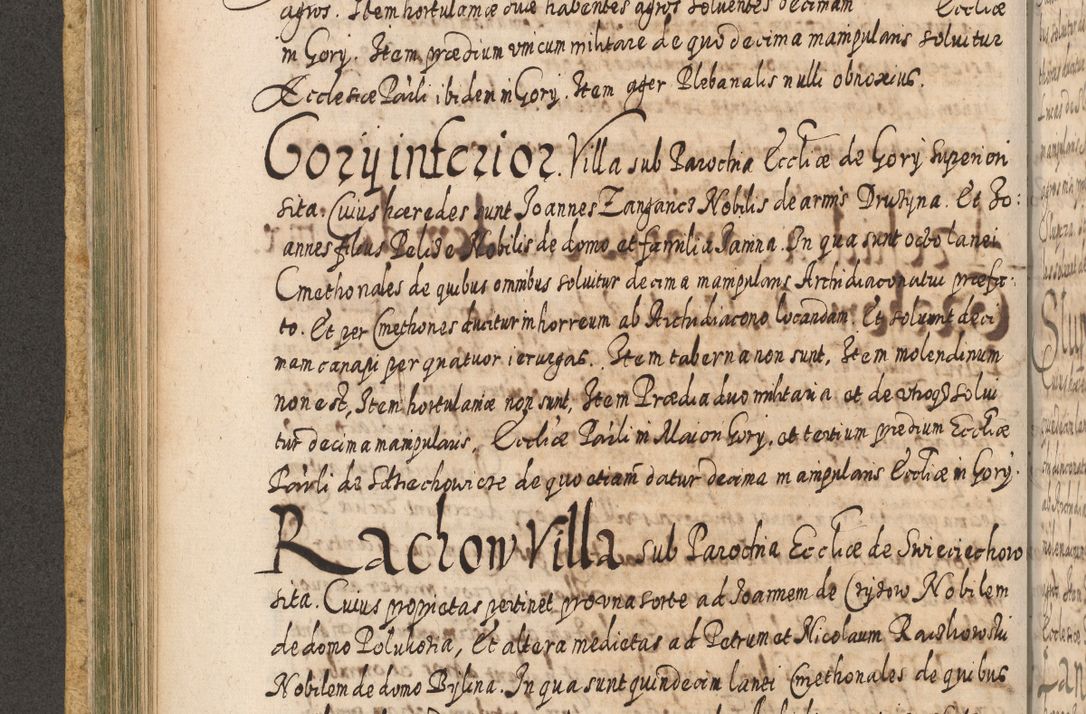 agros. Item hortulaniæ duæ habentes agros solventes decimam Eccliæ
in Gory. Item prædium unicum militare de quo decima manipularis solvitur
Ecclesiæ Paŕli ibidem in Gory. Item ager Plebanalis nulli obnoxius.
Gory inferior. Villa sub Parochia Eccliæ de Gory superiori
sita. Cuius hæredes sunt Joannes Nobilis de armis Druzyna. Et Jo:
annes filius Nobilis de domo et familia Janina. In qua sunt octo lanei
Cmethonales de quibus omnibus solvitur decima manipularis Archidiaconatui præfa:
to. Et per Cmethones ducitur in horreum ab Archidiacono locandam. Et solvunt deci
mam canapi per quatuor ieruegas. Item taberna non sunt, Item molendinum
non est, Item hortulaniæ non sunt, Item Prædia duo militaria et de utroq3 solvi
tur decima manipularis, Eccliæ Paŕli in Maion Gory, et tertium prædium Eccliæ
Paŕli de de quo etiam datur decima manipularis Eccliæ in Gory.
Rachow Villa sub Parochia Eccliæ de Swieciechow
sita. Cuius proprietas pertinet pro una sorte ad Joannem de Nobilem
de domo Polukozia, Et altera medietas ad Petrum et Nicolaum Rachowski
Nobilem de domo Bylina. In qua sunt quindecim lanei Cmethonales de quibus